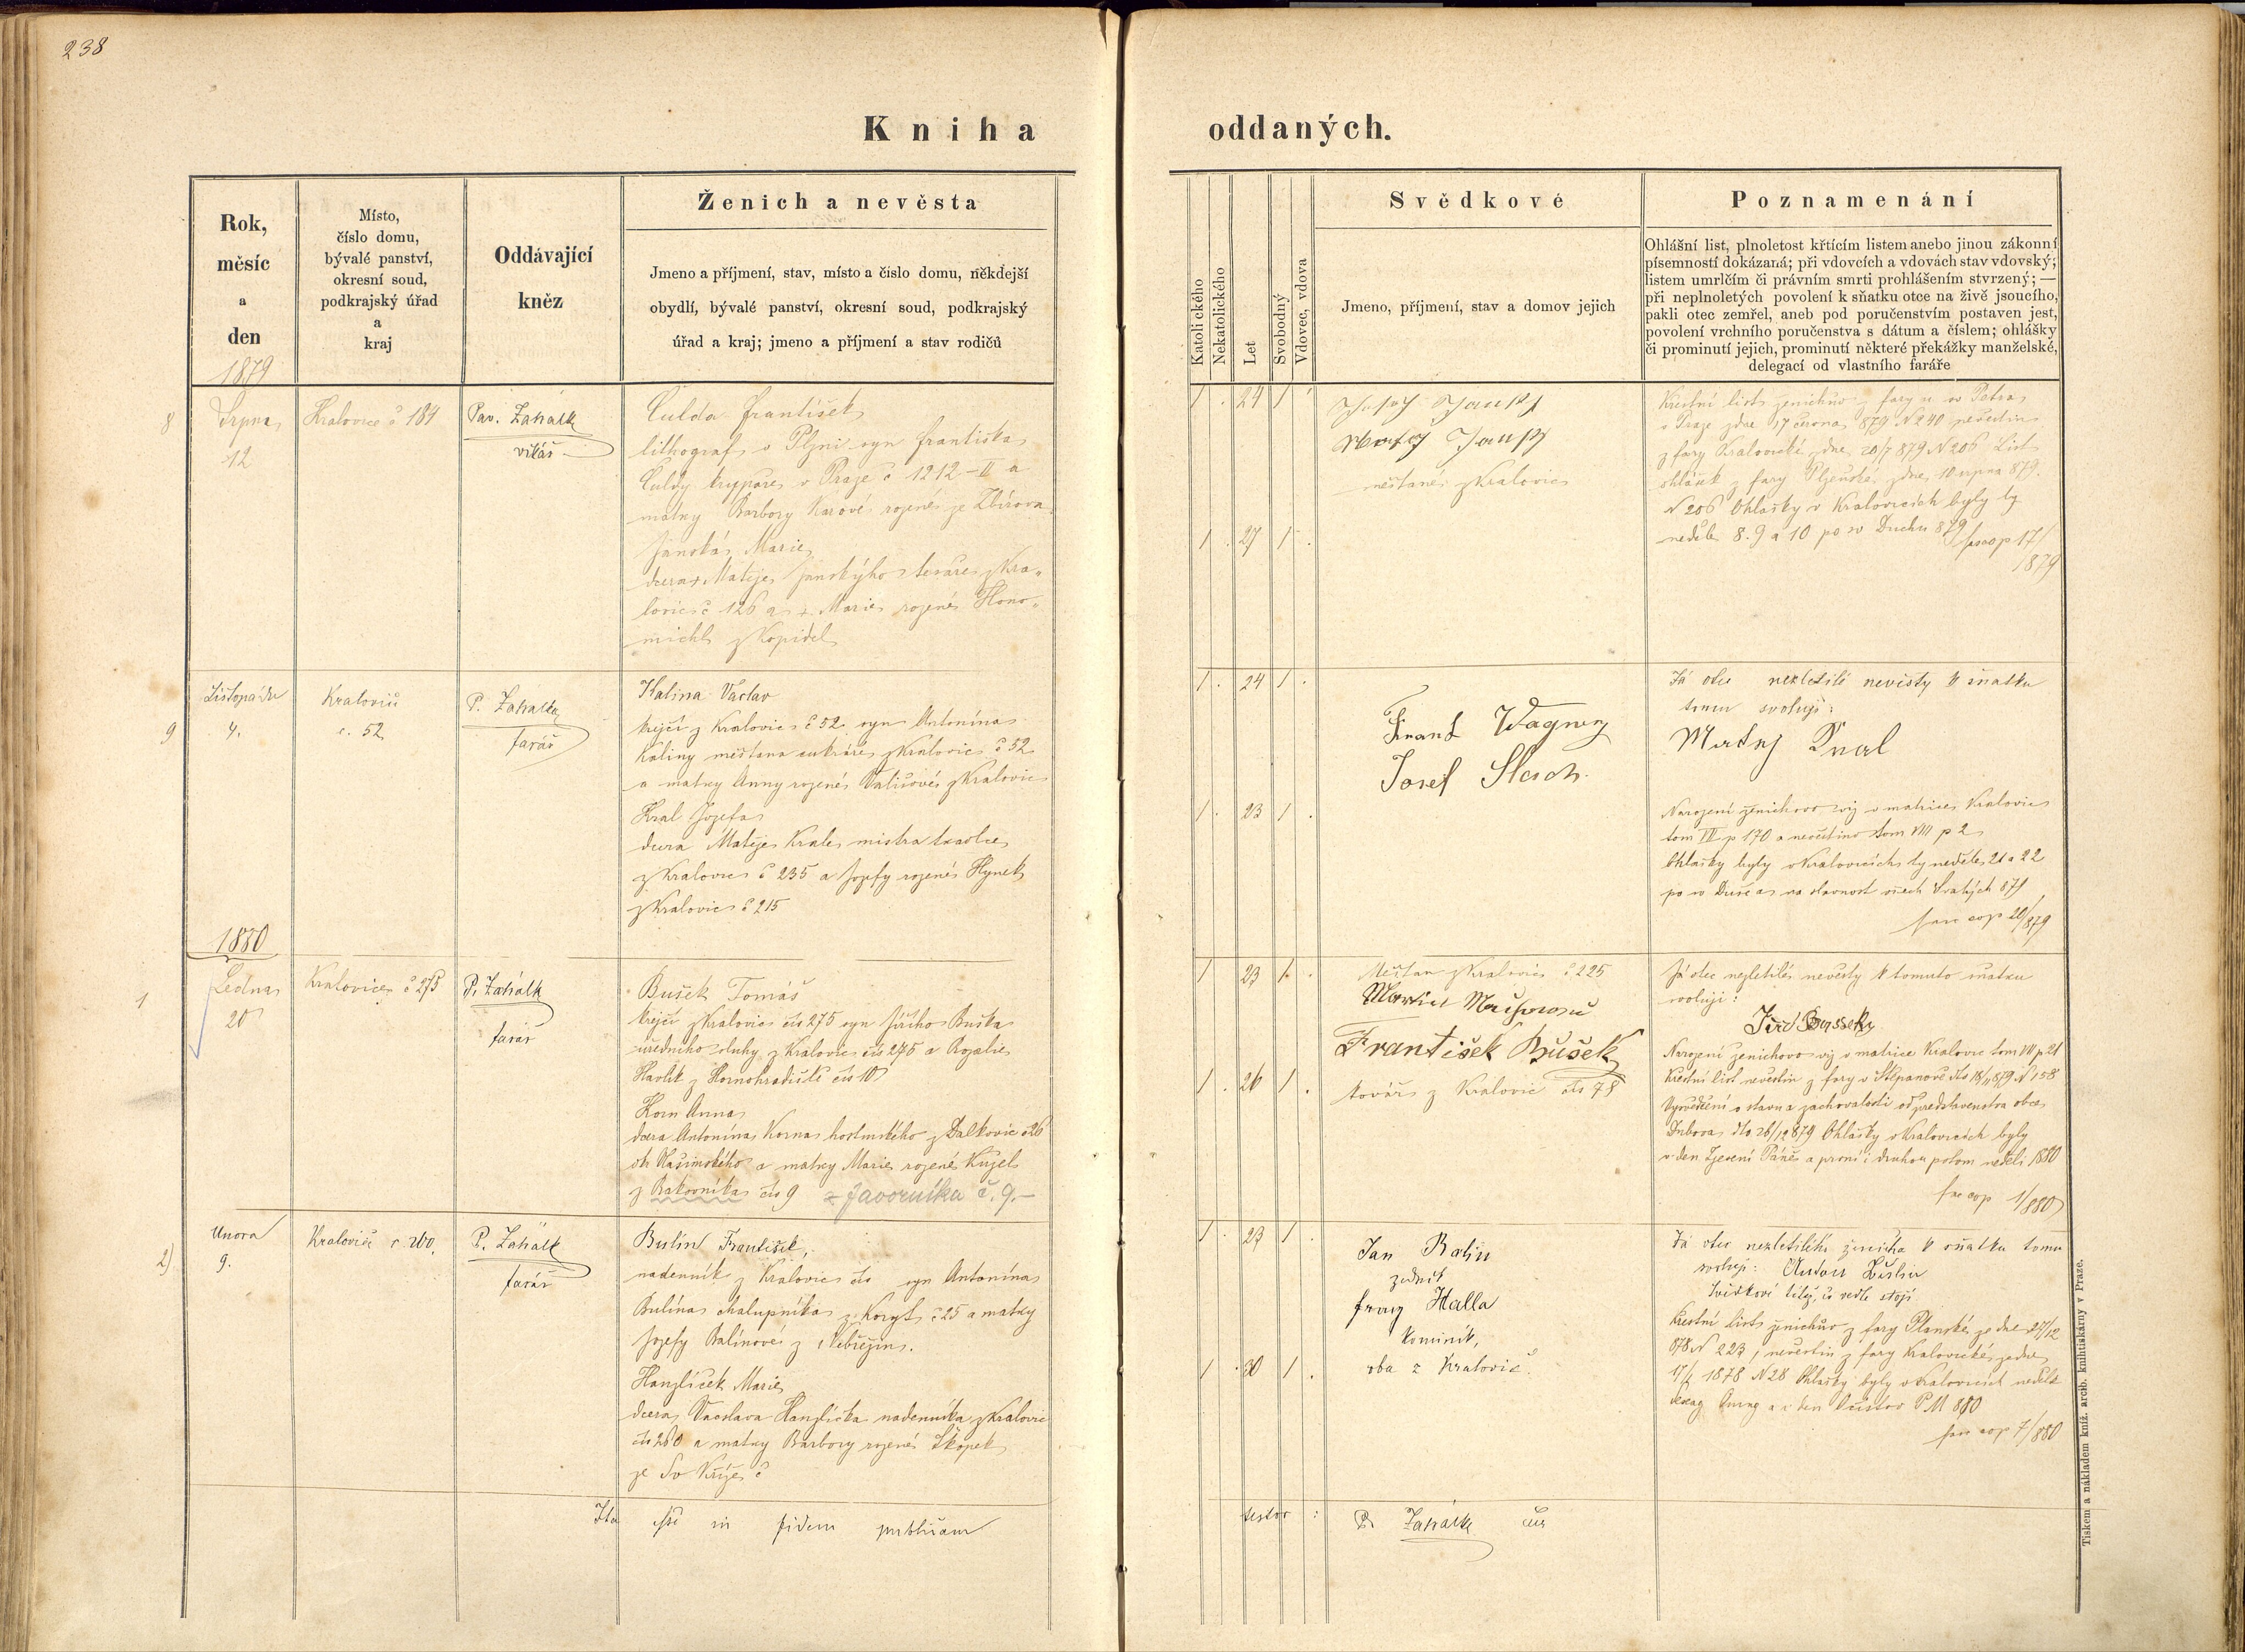 238
Kniha oddaných.
Rok,
měsíc
a
den
1879
Místo,
číslo domu,
bývalé panství,
okresní soud,
podkrajský úřad
a
kraj
Oddávající
kněz
Ženich a nevěsta
Jmeno a příjmení, stav, místo a číslo domu, někdejší
obydlí, bývalé panství, okresní soud, podkrajský
úřad a kraj; jmeno a příjmení a stav rodičů
Katolického
Nekatolického
Let
Svobodný
Vdovec, vdova
Svědkové
Jmeno, příjmení, stav a domov jejich
Poznamenání
Ohlášní list, plnoletost křtícím listem anebo jinou zákonní
písemností dokázaná; při vdovcích a vdovách stav vdovský;
listem umrlčím či právním smrti prohlášením stvrzený; —
při neplnoletých povolení k sňatku otce na živě jsoucího,
pakli otec zemřel, aneb pod poručenstvím postaven jest,
povolení vrchního poručenstva s dátum a číslem; ohlášky
či prominutí jejich, prominutí některé překážky manželské,
delegací od vlastního faráře
8
Srpna
12
Kralovice č 184
Pav. Zahalk
Culda František
lithograf v Plzni syn Františka
Culdy v Praze č 1212-II a
matky Barbory rojené ze Zbirova
Janská Marie
dcera + Matěje Janskýho z Kra-
lovic č 126 a + Marie rojené Hono-
michl z Kopidel
1 24 1
1 27 1
měštané z Kralovic
Křestní list ženichův z fary u sv Petra
v Praze zdne 17 června 879 N 240 nevěstin
z fary Kralovické zdne 20/7 879 N 206 List
ohlášek z fary Plzeňské zdne 10 srpna 879.
N 206 Ohlášky v Kralovicích byly ty
neděle 8. 9 a 10 po sv Duchu 879
17/
1879
9
Listopadu
4.
Kralovic
č. 52
P. Zahalka
farář
Kalina Václav
krejčí z Kralovic č 52 syn Antonína
Kaliny měšťana cukráře z Kralovic č 52
a matky Anny rojené z Kralovic
Kral Jozefa
dcera Matěje Krale mistra tkadlce
z Kralovic č 235 a Jozefy rojené Hynek
z Kralovic č 215
1 24 1
1 23 1
Franz Wagner
Josef
Já otec nezletilé nevěsty k sňatku
tomu svoluji:
Matěj Kral
Narození ženichovo viz v matrice Kralovic
tom VII p 170 a nevěstino tom VIII p 2
Ohlášky byly v Kralovicích ty neděle 21 a 22
po sv Duše a na slavnost všech Svatých 879
fasc cop 20/879
1880
1
Ledna
20
Kralovice č 275
P. Zahalk
farář
Bušek Tomáš
krejčí z Kralovic čís 275 syn Jiřího Buška
uředního sluhy z Kralovic čís 275 a Rozalie
Havlik z Hornohradiště čís 10
Korn Anna
dcera Antonína Korna hostinského z Dalkovic č 26
a matky Marie rojené Kugel
z Rakovníka čís 9 z Javorníka č. 9.—
1 23 1
1 26 1
Měšťan z Kralovic č 225
František Bušek
kovář z Kralovic čís 78
Já otec nezletilé nevěsty k tomuto sňatku
svoluji:
Jiří Bussek
Narození ženichovo viz v matrice Kralovic tom VIII p 21
Křestní list nevěstin z fary v Štěpanově dto 18/11 879 N 158
Vysvědčení o stavu a zachovalosti od představenstva obce
Dubova dto 26/12 879 Ohlášky v Kralovicích byly
v den Zjevení Páně a první i druhou potom neděli 1880
fasc cop 1/880
2)
Unora
9.
Kralovic č. 260.
P. Zahalk
farář
Bulín František,
nadenník z Kralovic čís syn Antonína
Bulína chalupníka z Koryt č 25 a matky
Jozefy Balínové z Nebřezin.
Hanzlíček Marie
dcera Vacslava Hanzlíčka nadenníka z Kralovic
čís 260 a matky Barbory rojené Škopek
ze Sv Kříže č
1 23 1
1 30 1
Jan Balin
zedník
Franz Halla
kominík,
oba z Kralovic.
Já otec nezletilého ženicha k sňatku tomu
svoluji: Anton Bulin
Svědkové titéž, co vedle stojí
Křestní list ženichův z fary Planské ze dne 27/12
878 N 223, nevěstin z fary Kralovické ze dne
1878 N 28 Ohlášky byly v Kralovicích neděle
P M 880
fasc cop 7/880
Ita esse in fidem publicam
testor: P. Zahalk
Tiskem a nákladem kníž. arcib. knihtiskárny v Praze.